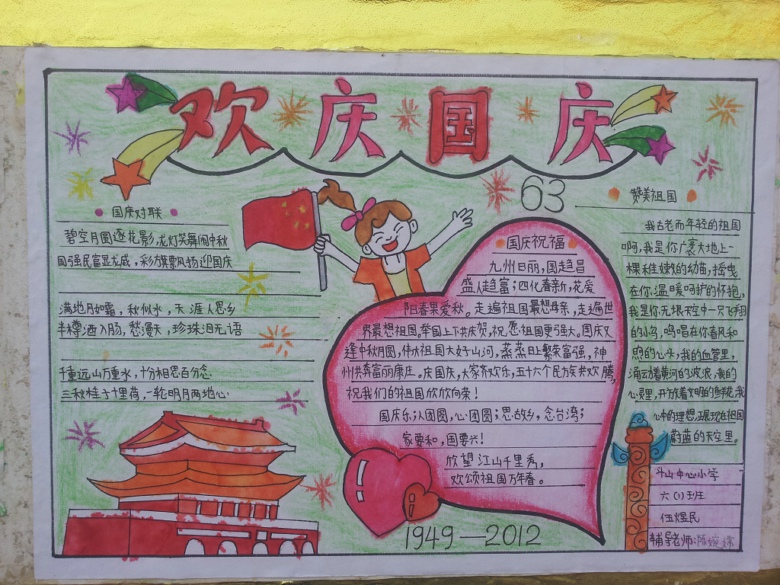 欢庆国庆
63
国庆对联
碧空月圆逐花影,龙灯笑舞闹中秋
国强民富显龙威,彩旗飘扬迎国庆
满地月如霜,秋似水,天涯人思乡
半樽酒入肠,愁漫天,珍珠泪无语
千重远山万重水,十分相思百分念
三秋桂子十里荷,一轮明月两地心
国庆祝福
九州日丽,国趋昌
盛人趋富;四化春新,花爱
阳春果爱秋。走遍祖国最想母亲,走遍世
界最想祖国,举国上下共庆贺,祝愿祖国更强大。国庆又
逢中秋月圆,伟大祖国大好山河,蒸蒸日上繁荣富强,神
州共奔富丽康庄。庆国庆,大家齐欢乐,五十六个民族共欢腾,
祝我们的祖国欣欣向荣!
国庆乐;人团圆,心团圆;思故乡,念台湾;
家要和,国要兴!
欣望江山千里秀,
欢颂祖国万年春。
赞美祖国
我古老而年轻的祖国
啊,我是你广袤大地上一
棵稚嫩的幼苗,摇曳
在你温暖呵护的怀抱,
我是你无垠天空中一只飞翔
的小鸟,鸣唱在你春风和
煦的心头;我的血管里,
涌动着黄河的波浪,我的
心灵里,开放着文明的鲜花,我
心中的理想,展现在祖国
蔚蓝的天空里。
斗山中心小学
六(1)班
伍煜民
辅导老师:
1949—2012